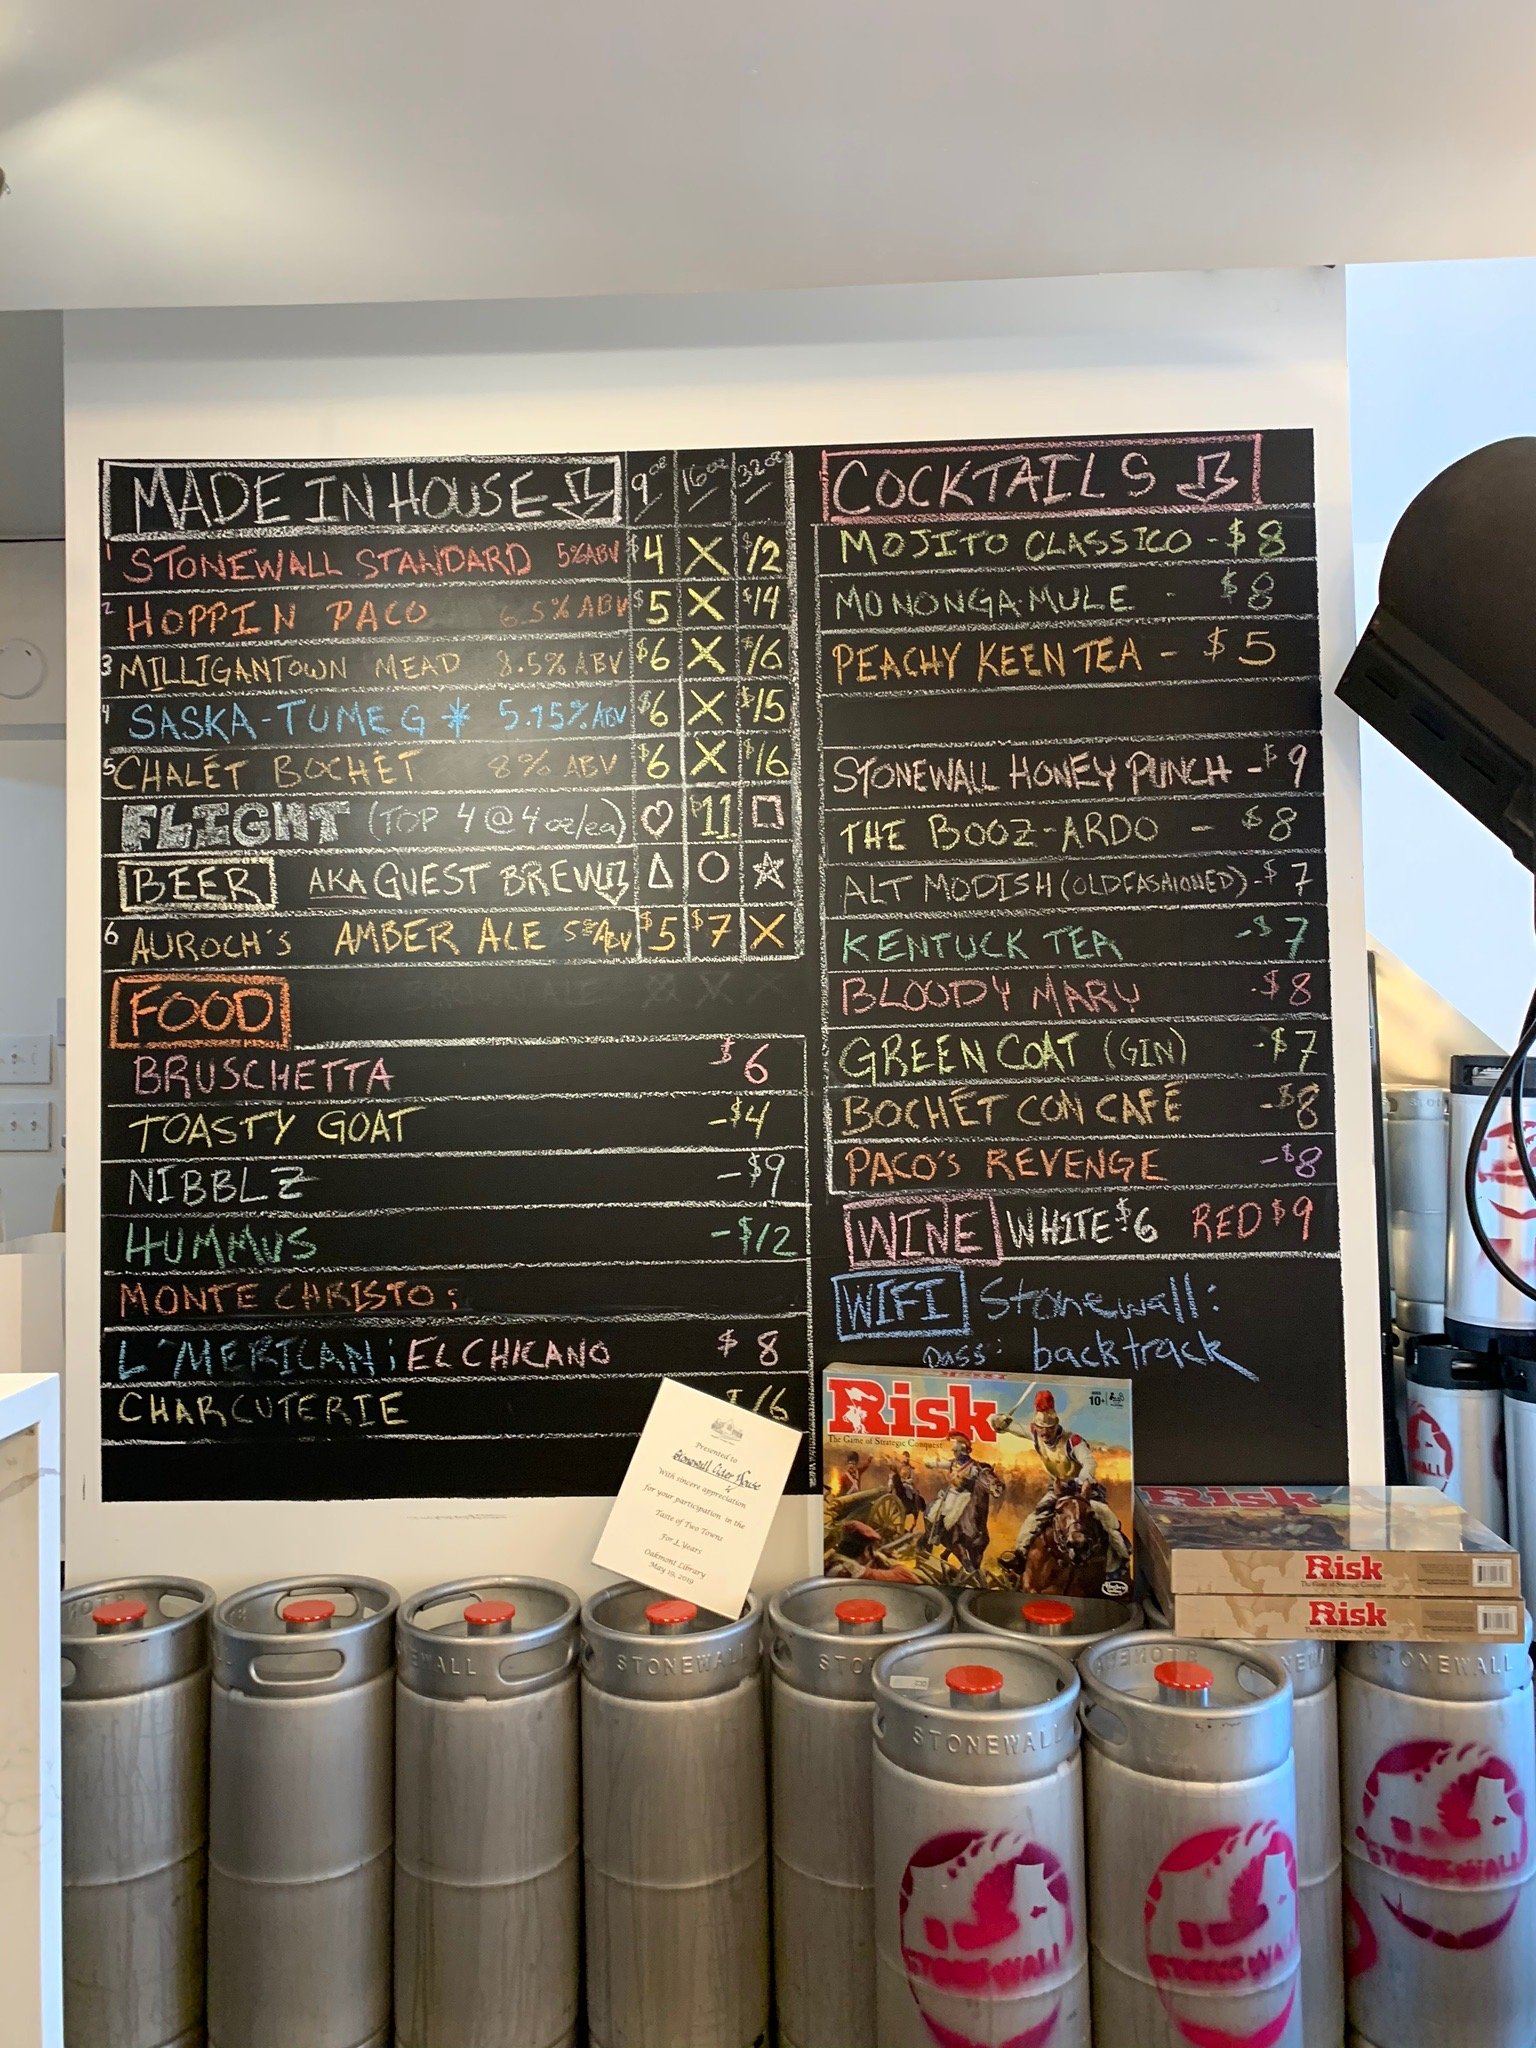 MADE IN HOUSE 9oz 16oz 32oz
1 STONEWALL STANDARD 5% ABV $4 X $12
2 HOPPIN PACO 6.5% ABV $5 X $14
3 MILLIGANTOWN MEAD 8.5% ABV $6 X $16
4 SASKA-TUMEG * 5.15% ABV $6 X $15
5 CHALÉT BOCHÉT 8% ABV $6 X $16
FLIGHT (TOP 4 @ 4oz/ea) $11
BEER AKA GUEST BREW
6 AUROCH'S AMBER ALE 5% ABV $5 $7 X
FOOD
BRUSCHETTA $6
TOASTY GOAT -$4
NIBBLZ -$9
HUMMUS -$12
MONTE CHRISTO;
L'MERICAN; EL CHICANO $8
CHARCUTERIE $16
COCKTAILS
MOJITO CLASSICO - $8
MONONGA-MULE - $8
PEACHY KEEN TEA - $5
STONEWALL HONEY PUNCH - $9
THE BOOZ-ARDO - $8
ALT MODISH (OLDFASHIONED) - $7
KENTUCK TEA -$7
BLOODY MARY -$8
GREEN COAT (GIN) -$7
BOCHÉT CON CAFÉ -$8
PACO'S REVENGE -$8
WINE WHITE $6 RED $9
WIFI Stonewall:
pass: backtrack
Presented to
Stonewall Cider House
With sincere appreciation
for your participation in the
Taste of Two Towns
For 1 Years
Oakmont Library
May 19, 2019
Risk
The Game of Strategic Conquest
AGES
10+
Hasbro
Gaming
Risk
Risk
Risk
STONEWALL
STONEWALL
STONEWALL
STONEWALL
STONEWALL
STONEWALL
STONEWALL
STONEWALL